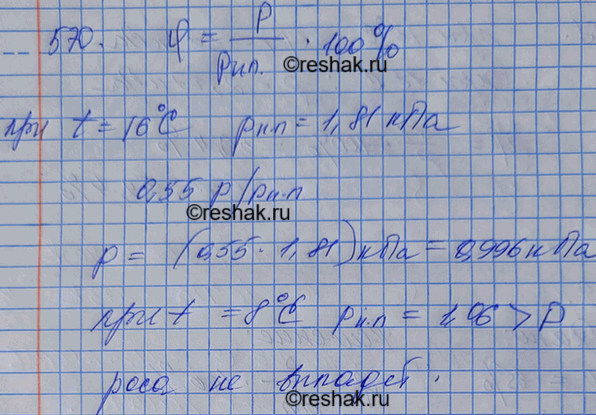 570. φ = P / Pн.п. · 100%
©reshak.ru
при t = 16°C pн.п = 1,81 кПа
0,55 p/pн.п
©reshak.ru
p = (0,55 · 1,81) кПа = 0,996 кПа
при t = 8°C pн.п = 1,06 > p
©reshak.ru
роса не выпадет.